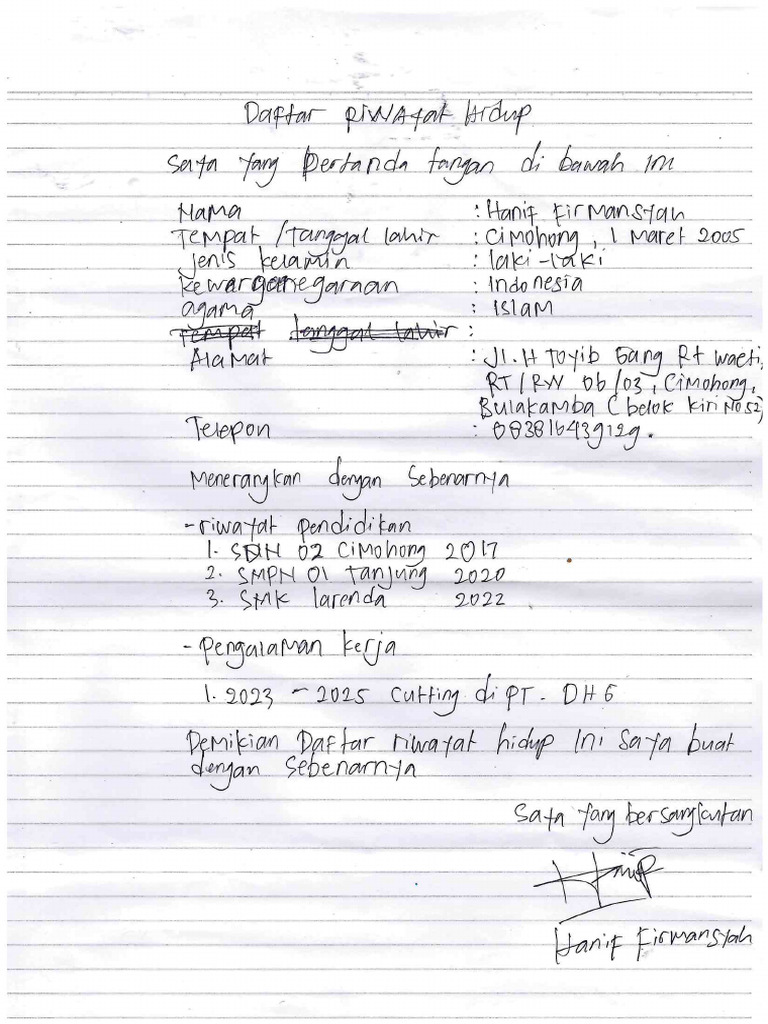 Daftar RiWAyat Hidup
Saya Yang Bertanda tangan di bawah Ini
Nama : Hanif Firmansyah
Tempat /Tanggal lahir : Cimohong, 1 Maret 2005
Jenis kelamin : laki-laki
kewarganegaraan : Indonesia
agama : Islam
Tempat tanggal lahir :
Alamat : Jl. H Toyib Gang Rt waeti,
RT/RW 06/03, Cimohong,
Bulakamba ( belok kiri No 52)
Telepon : 083816439129.
Menerangkan dengan Sebenarnya
-riwayat pendidikan
1. SDN 02 Cimohong 2017
2. SMPN 01 Tanjung 2020
3. SMK larenda 2022
- Pengalaman kerja
1. 2023 - 2025 Cutting di PT. DHG
Demikian Daftar riwayat hidup Ini Saya buat
dengan Sebenarnya
Saya yang bersangkutan
Hanif
Hanif Firmansyah